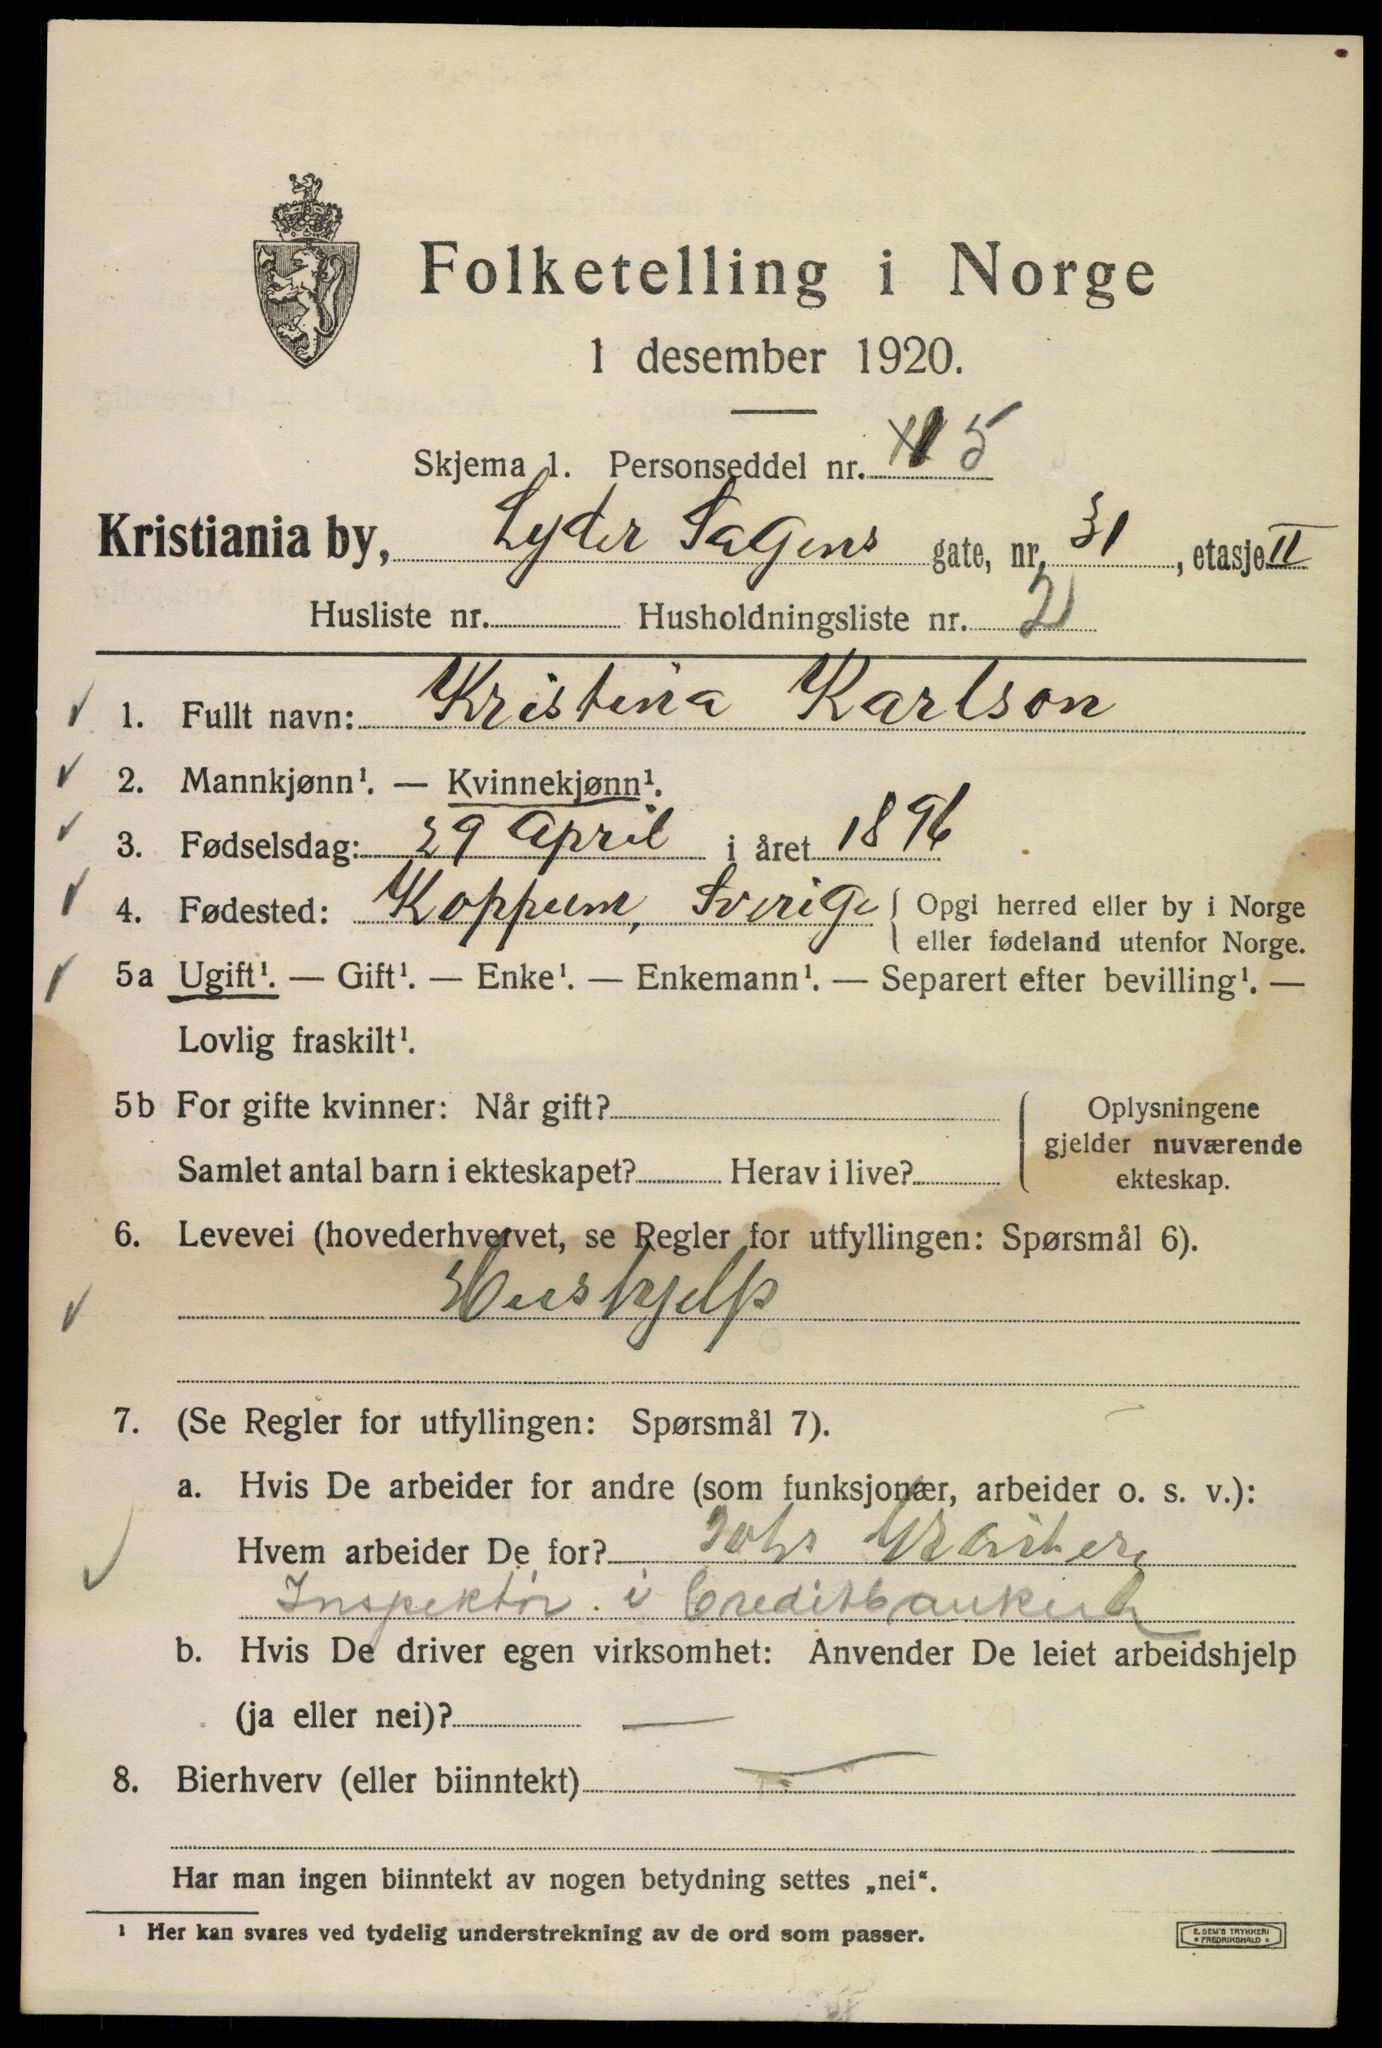 Folketelling i Norge
1 desember 1920.
Skjema 1. Personseddel nr. 5
Kristiania by, Lyder Sagens gate, nr. 31, etasje II
Husliste nr. Husholdningsliste nr. 2
1. Fullt navn: Kristina Karlson
2. Mannkjønn¹. — Kvinnekjønn¹.
3. Fødselsdag: 29 April i året 1896
4. Fødested: Koppum, Sverige { Opgi herred eller by i Norge
eller fødeland utenfor Norge.
5a Ugift¹. — Gift¹. — Enke¹. — Enkemann¹. — Separert efter bevilling¹. —
Lovlig fraskilt¹.
5b For gifte kvinner: Når gift?
Samlet antal barn i ekteskapet? Herav i live?
Oplysningene
gjelder nuværende
ekteskap.
6. Levevei (hovederhvervet, se Regler for utfyllingen: Spørsmål 6).
Hushjelp
7. (Se Regler for utfyllingen: Spørsmål 7).
a. Hvis De arbeider for andre (som funksjonær, arbeider o. s. v.):
Hvem arbeider De for? Johs
Inspektør i Creditbanken
b. Hvis De driver egen virksomhet: Anvender De leiet arbeidshjelp
(ja eller nei)? —
8. Bierhverv (eller biinntekt) —
Har man ingen biinntekt av nogen betydning settes „nei“.
¹ Her kan svares ved tydelig understrekning av de ord som passer.
E. SEM'S TRYKKERI
FREDRIKSHALD